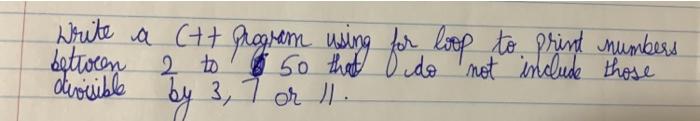 Write a C++ program using for loop to print numbers
between 2 to 50 that do not include those
divisible by 3, 7 or 11.